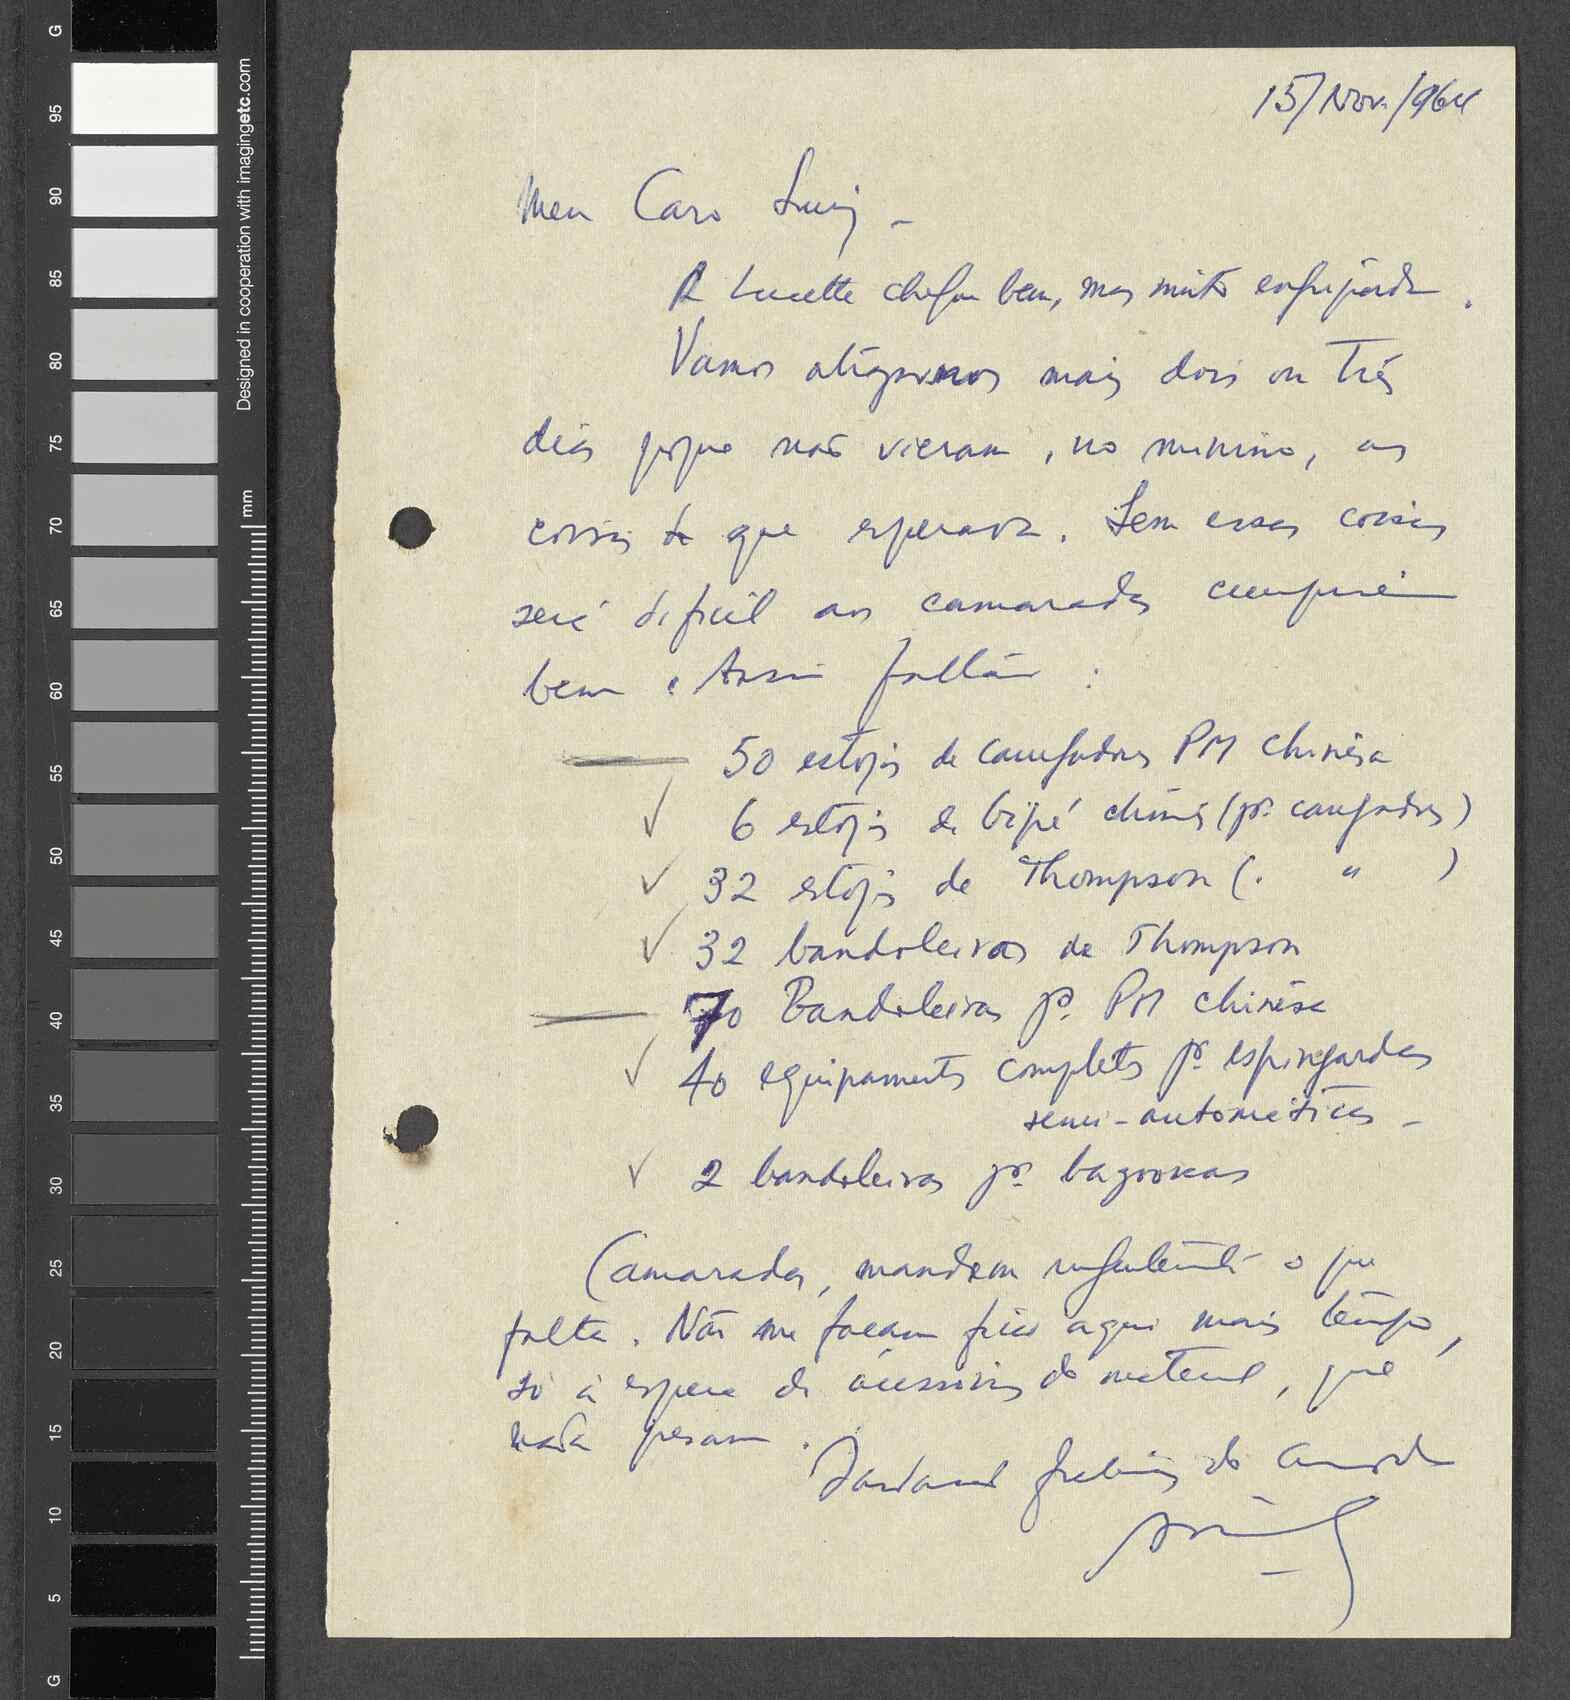 15/Nov./964
Meu Caro Luiz -
A Lucette chegou bem, mas muito engripada.
Vamos atrazarmos mais dois ou três
dias porque não vieram, no minimo, as
coisas de que esperava. Sem essas coisas
será dificil aos camaradas cumprirem
bem. Assim faltam:
50 estojos de carregadores PM chinêsa
6 estojos de bipé chinês (pª carregadores)
32 estojos de Thompson (. " )
32 bandoleiras de Thompson
70 Bandoleiras pª PM chinêsa
40 equipamentos completos pª espingardas
semi-automáticas -
2 bandoleiras pª bazookas
Camaradas, mandem urgentemente o que
falta. Não me façam ficar aqui mais tempo,
só à espera de acessórios do material, que
nada pesam.
do Amilcar
G
95
90
85
80
75
70
65
60
55
50
45
40
35
30
25
20
15
10
5
G
Designed in cooperation with imagingetc.com
mm